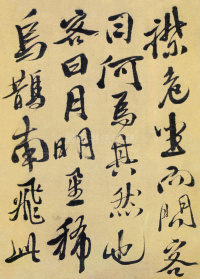 襟危坐而問客
曰何為其然也
客曰月明星稀
烏鵲南飛此